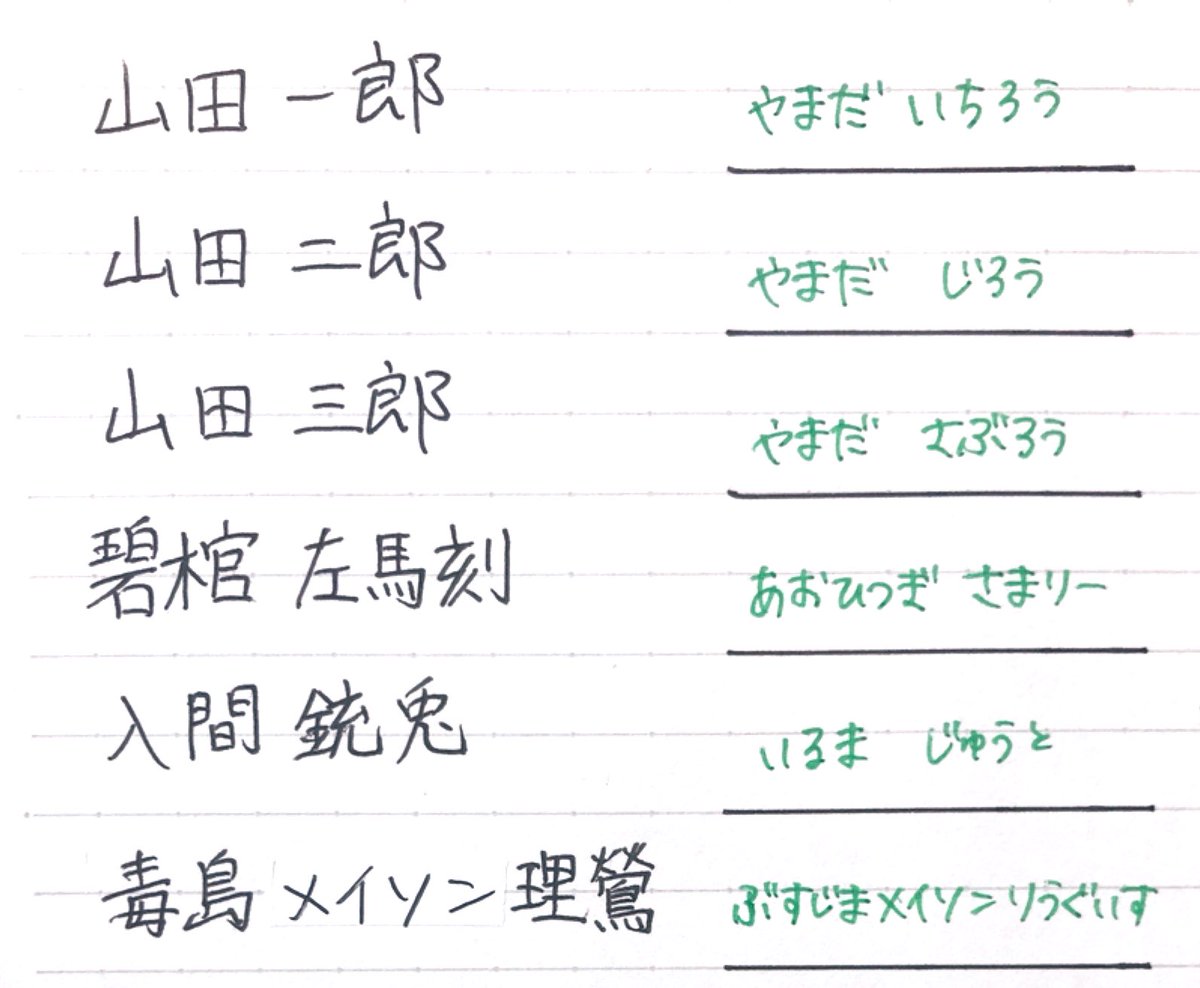 山田 一郎 やまだ いちろう
山田 二郎 やまだ じろう
山田 三郎 やまだ さぶろう
碧棺 左馬刻 あおひつぎ さまりー
入間 銃兎 いるま じゅうと
毒島 メイソン 理鶯 ぶすじまメイソンりうぐいす